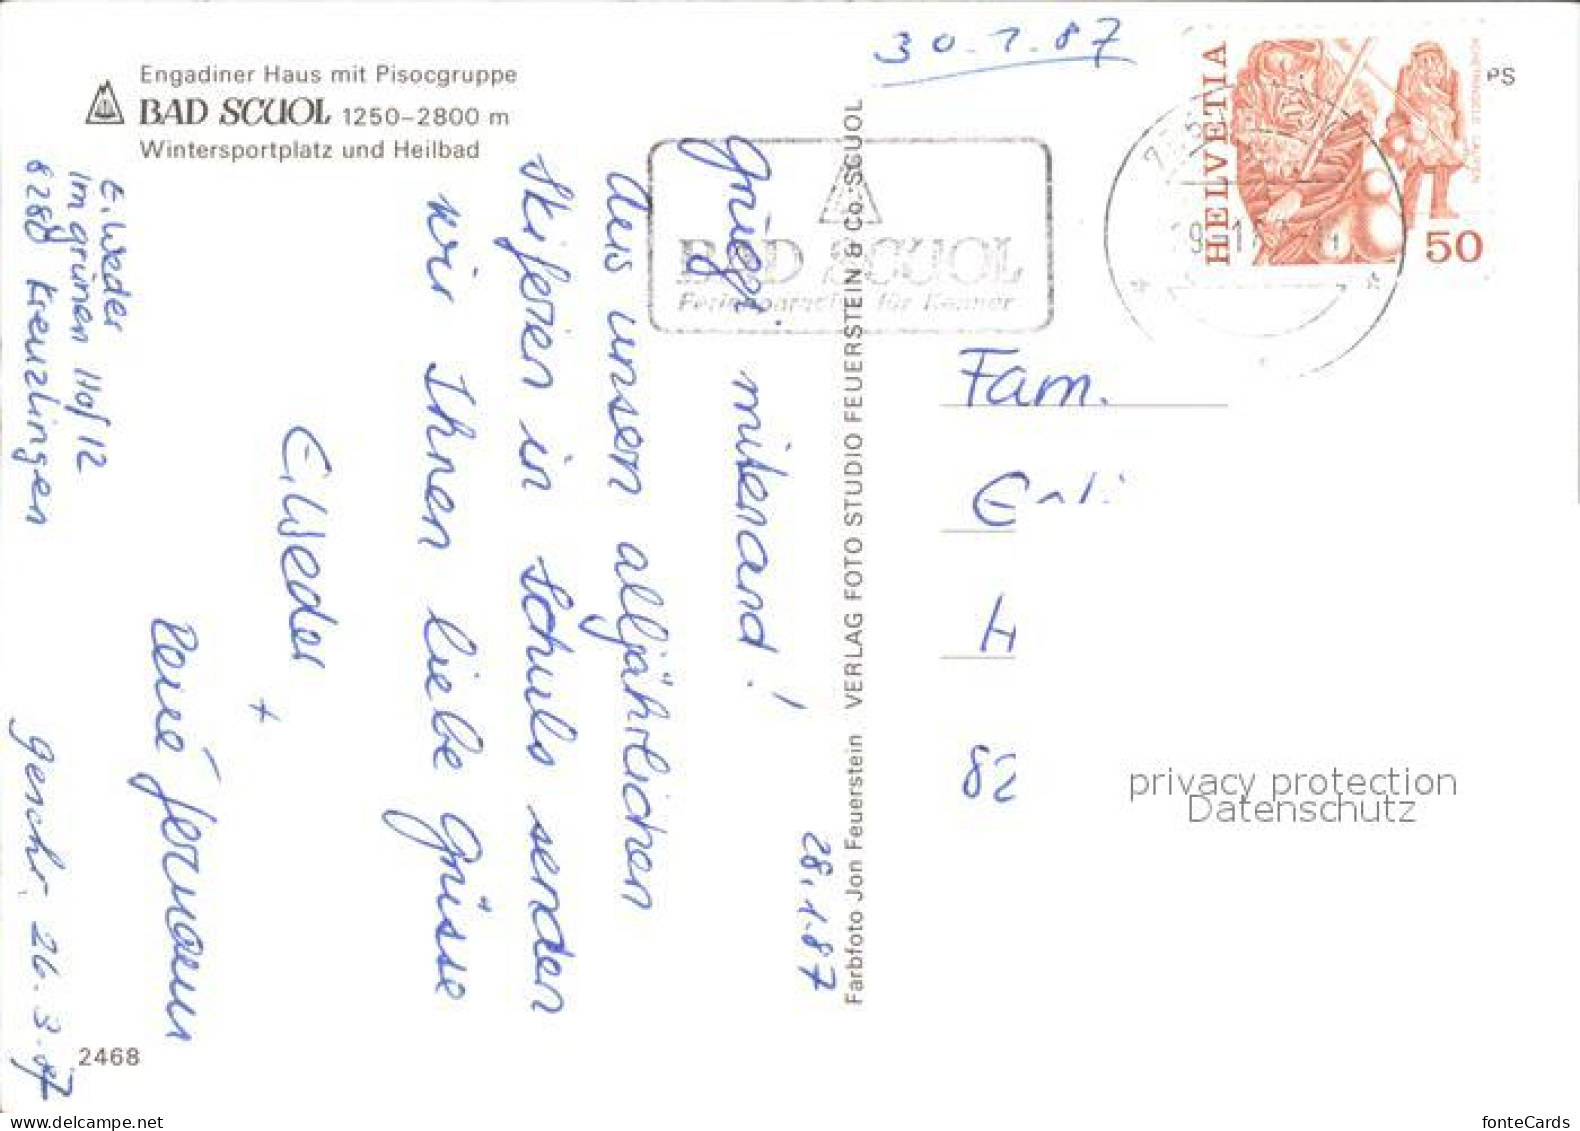 Engadiner Haus mit Pisocgruppe
BAD SCUOL 1250–2800 m
Wintersportplatz und Heilbad
30.1.87
HELVETIA
ACHETRINGELE LAUPEN
50
PS
BAD SCUOL
für Kenner
28.1.87
Grüezi mitenand!
Aus unsern alljährlichen
Skiferien in Schuls senden
wir Ihnen liebe Grüsse
E. Weder
+
René Jermann
E. Weder
Im grünen Hof 12
8280 Kreuzlingen
geschr. 26.3.87
2468
Farbfoto Jon Feuerstein VERLAG FOTO STUDIO FEUERSTEIN & Co. SCUOL
Fam.
H
82
privacy protection
Datenschutz
www.delcampe.net
fonteCards